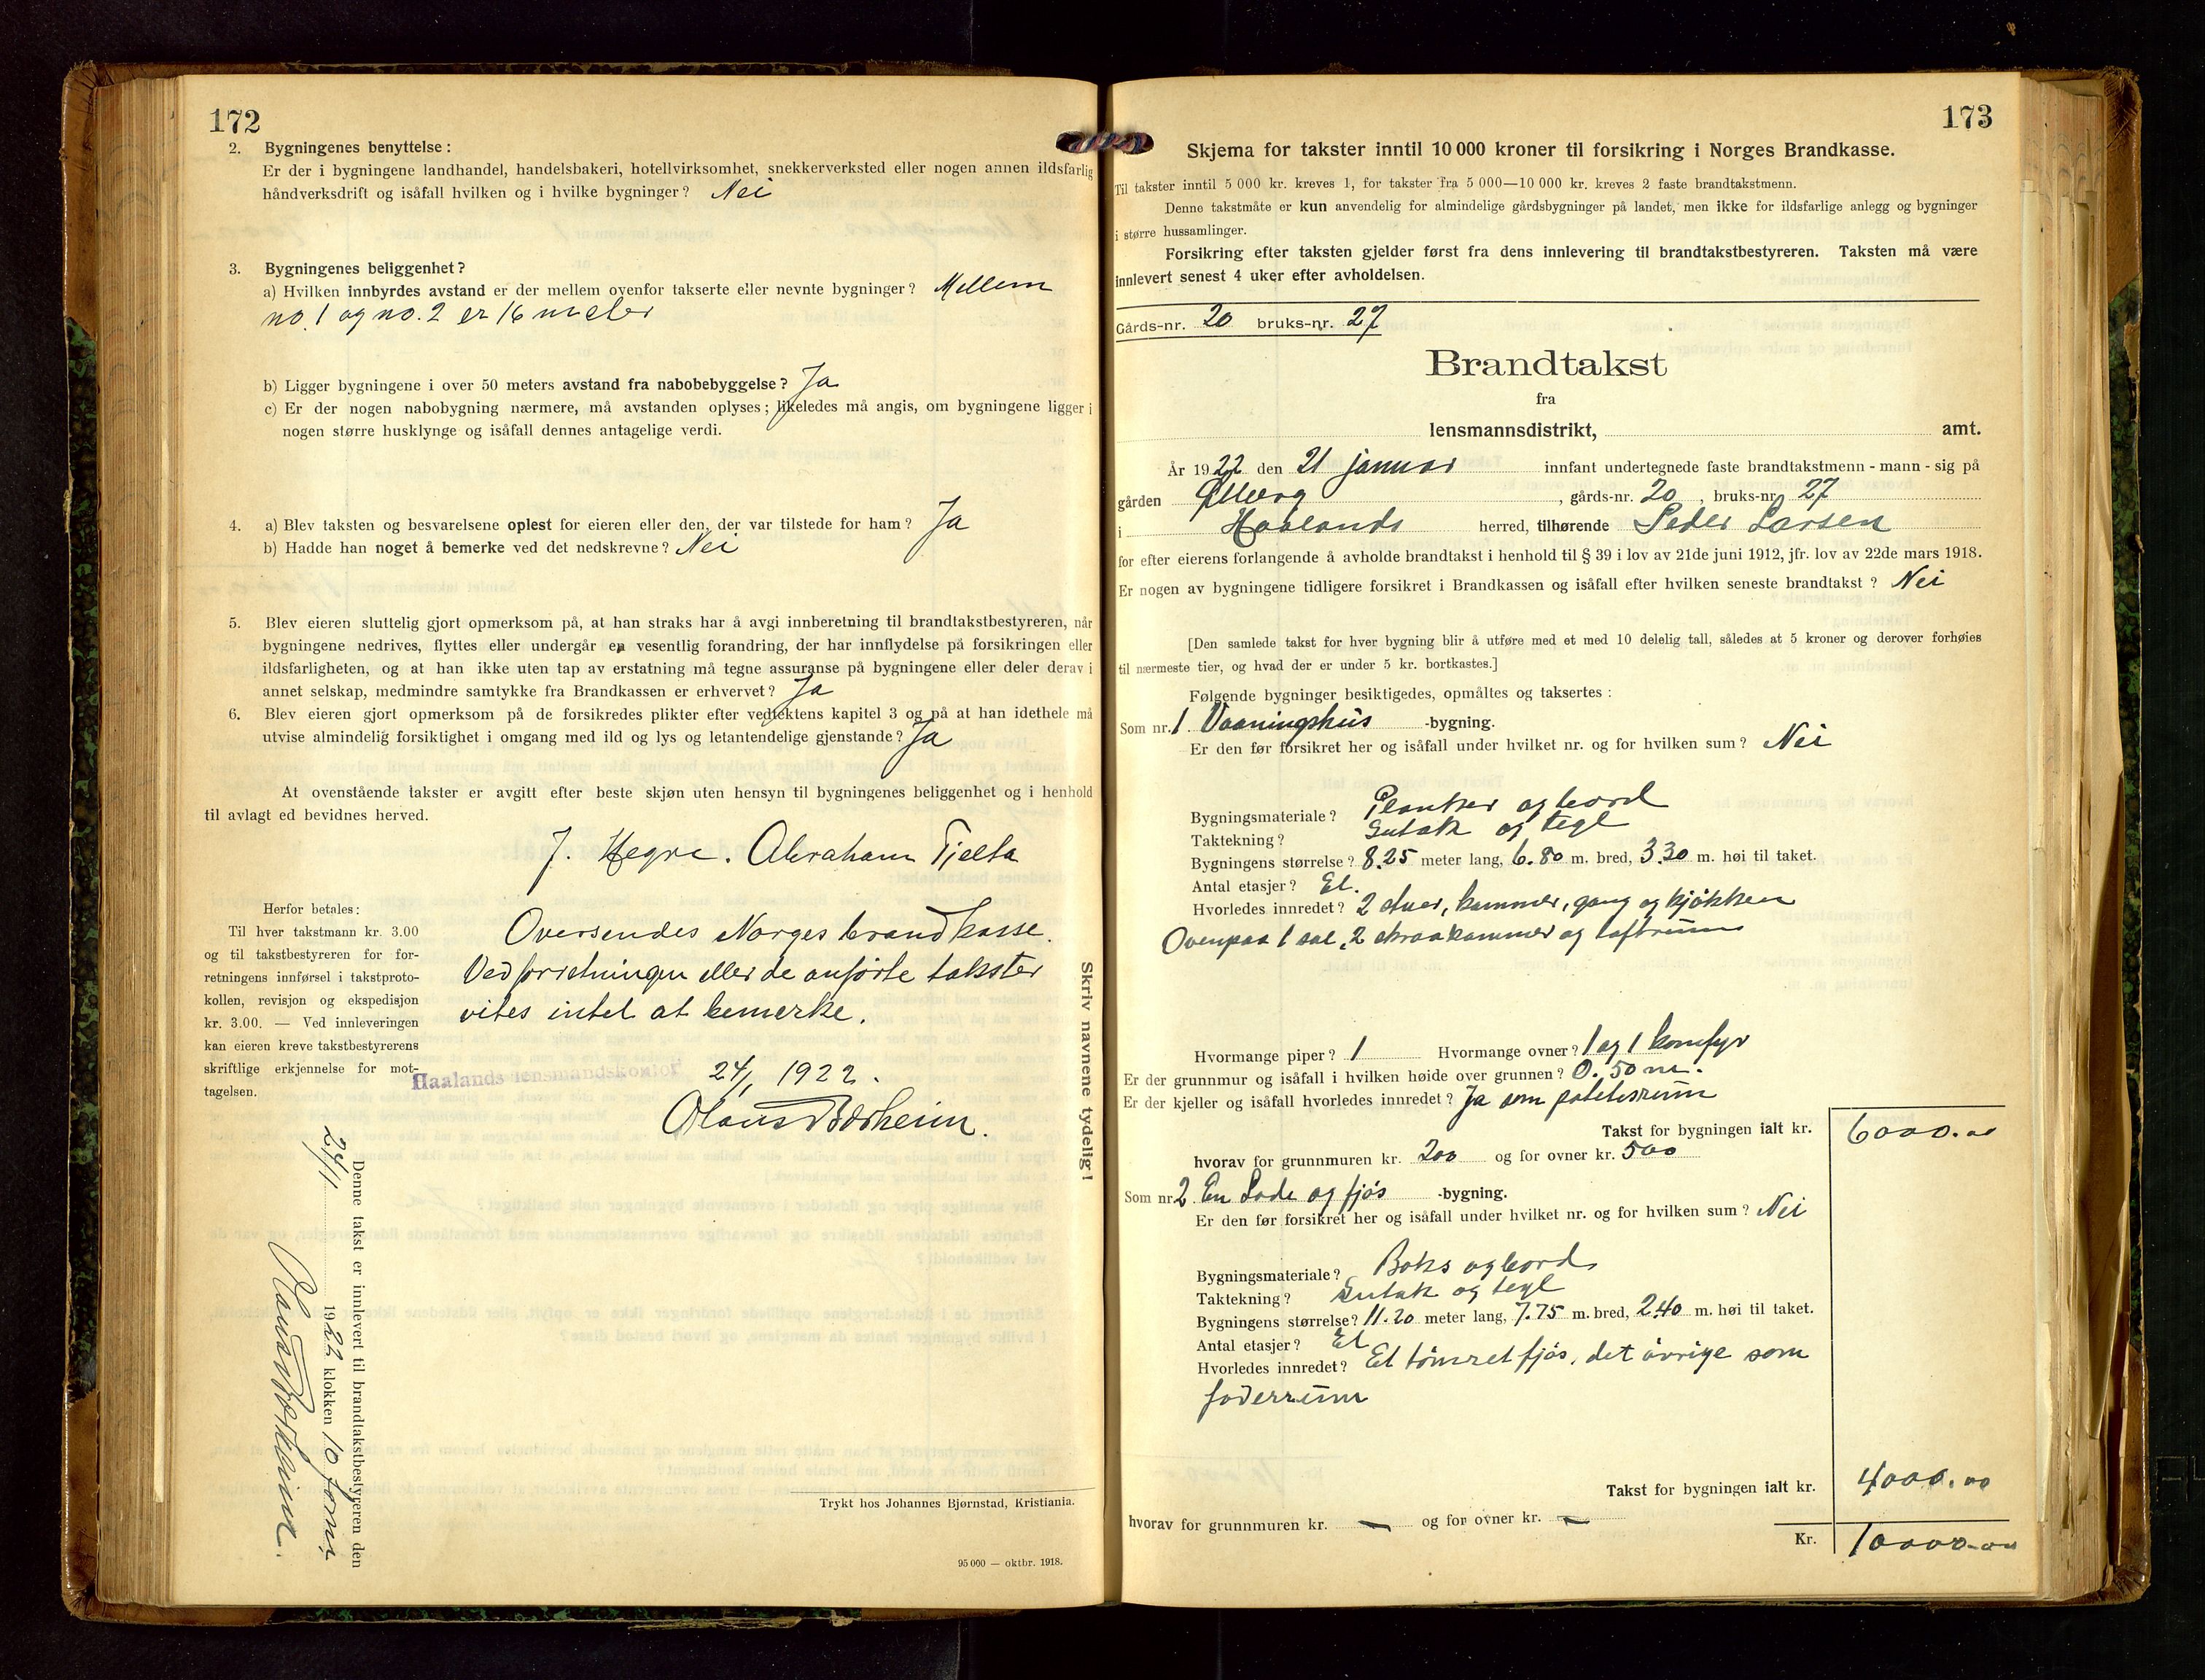 172
2. Bygningenes benyttelse:
Er der i bygningene landhandel, handelsbakeri, hotellvirksomhet, snekkerverksted eller nogen annen ildsfarlig
håndverksdrift og isåfall hvilken og i hvilke bygninger? Nei
3. Bygningenes beliggenhet?
a) Hvilken innbyrdes avstand er der mellem ovenfor takserte eller nevnte bygninger? Mellem
no. 1 og no. 2 er 16 meter
b) Ligger bygningene i over 50 meters avstand fra nabobebyggelse? Ja
c) Er der nogen nabobygning nærmere, må avstanden oplyses; likeledes må angis, om bygningene ligger i
nogen større husklynge og isåfall dennes antagelige verdi.
4. a) Blev taksten og besvarelsene oplest for eieren eller den, der var tilstede for ham? Ja
b) Hadde han noget å bemerke ved det nedskrevne? Nei
5. Blev eieren sluttelig gjort opmerksom på, at han straks har å avgi innberetning til brandtakstbestyreren, når
bygningene nedrives, flyttes eller undergår en vesentlig forandring, der har innflydelse på forsikringen eller
ildsfarligheten, og at han ikke uten tap av erstatning må tegne assuranse på bygningene eller deler derav i
annet selskap, medmindre samtykke fra Brandkassen er erhvervet? Ja
6. Blev eieren gjort opmerksom på de forsikredes plikter efter vedtektens kapitel 3 og på at han idethele må
utvise almindelig forsiktighet i omgang med ild og lys og letantendelige gjenstande? Ja
At ovenstående takster er avgitt efter beste skjøn uten hensyn til bygningenes beliggenhet og i henhold
til avlagt ed bevidnes herved.
J. Hegre. Abraham Tjelta
Herfor betales:
Til hver takstmann kr. 3.00
og til takstbestyreren for for-
retningens innførsel i takstproto-
kollen, revisjon og ekspedisjon
kr. 3.00. — Ved innleveringen
kan eieren kreve takstbestyrerens
skriftlige erkjennelse for mot-
tagelsen.
Oversendes Norges brandkasse.
Ved forretningen eller de anførte takster
vites intet at bemerke.
Haalands lensmandskontor 24/1 1922.
Olaus Bærheim.
Skriv navnene tydelig!
Denne takst er innlevert til brandtakstbestyreren den
24/1 1922 klokken 10 form.
Olaus Bærheim.
Trykt hos Johannes Bjørnstad, Kristiania.
95 000 — oktbr. 1918.
173
Skjema for takster inntil 10 000 kroner til forsikring i Norges Brandkasse.
Til takster inntil 5 000 kr. kreves 1, for takster fra 5 000—10 000 kr. kreves 2 faste brandtakstmenn.
Denne takstmåte er kun anvendelig for almindelige gårdsbygninger på landet, men ikke for ildsfarlige anlegg og bygninger
i større hussamlinger.
Forsikring efter taksten gjelder først fra dens innlevering til brandtakstbestyreren. Taksten må være
innlevert senest 4 uker efter avholdelsen.
Gårds-nr. 20 bruks-nr. 27
Brandtakst
fra
lensmannsdistrikt, amt.
År 1922 den 21 januar innfant undertegnede faste brandtakstmenn - mann - sig på
gården , gårds-nr. 20, bruks-nr. 27
i Haalands herred, tilhørende Peder Larsen
for efter eierens forlangende å avholde brandtakst i henhold til § 39 i lov av 21de juni 1912, jfr. lov av 22de mars 1918.
Er nogen av bygningene tidligere forsikret i Brandkassen og isåfall efter hvilken seneste brandtakst? Nei
[Den samlede takst for hver bygning blir å utføre med et med 10 delelig tall, således at 5 kroner og derover forhøies
til nærmeste tier, og hvad der er under 5 kr. bortkastes.]
Følgende bygninger besiktigedes, opmåltes og taksertes:
Som nr. 1 Vaaningshus -bygning.
Er den før forsikret her og isåfall under hvilket nr. og for hvilken sum? Nei
Bygningsmateriale? Planker og bord
Taktekning? Sutak og tegl
Bygningens størrelse? 8.25 meter lang, 6.80 m. bred, 3.30 m. høi til taket.
Antal etasjer? Et.
Hvorledes innredet? 2 stuer, kammer, gang og kjøkken
Ovenpaa 1 sal, 2 skraakammer og loftrum
Hvormange piper? 1 Hvormange ovner? 1 og 1 komfyr
Er der grunnmur og isåfall i hvilken høide over grunnen? 0.50 m.
Er der kjeller og isåfall hvorledes innredet? Ja som potetesrum
Takst for bygningen ialt kr. 6000.00
hvorav for grunnmuren kr. 200 og for ovner kr. 500
Som nr. 2. En Lade og fjøs -bygning.
Er den før forsikret her og isåfall under hvilket nr. og for hvilken sum? Nei
Bygningsmateriale? Boks og bord
Taktekning? Sutak og tegl
Bygningens størrelse? 11.20 meter lang, 7.75 m. bred, 2.40 m. høi til taket.
Antal etasjer? Et
Hvorledes innredet? Et tømret fjøs, det øvrige som
foderrum
Takst for bygningen ialt kr. 4000.00
hvorav for grunnmuren kr. — og for ovner kr. —
Kr. 10000.00